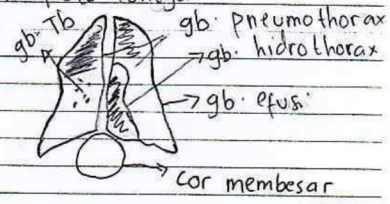 gb. Tb
gb. pneumothorax
gb. hidrothorax
gb. efusi
Cor membesar